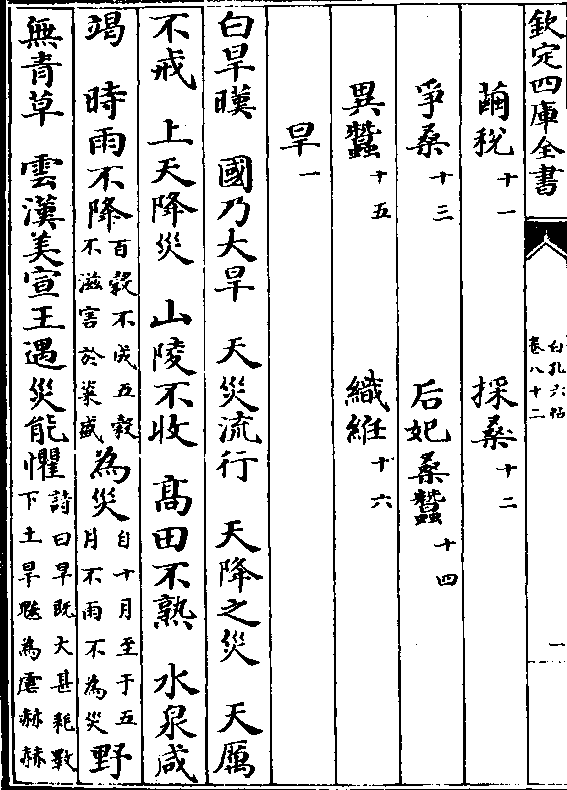 欽定四庫全書
白孔六帖
卷八十二
一
繭稅十一 採桑十二
爭桑十三 后妃桑蠶十四
異蠶十五 織絍十六
旱一
白旱暵 國乃大旱 天災流行 天降之災 天厲
不戒 上天降災 山陵不收 高田不熟 水泉咸
竭 時雨不降百穀不成五穀不滋害於粢盛為災自十月至于五月不雨不為災野
無青草 雲漢美宣王遇災能懼詩曰旱既大甚耗斁下土旱魃為虐赫赫